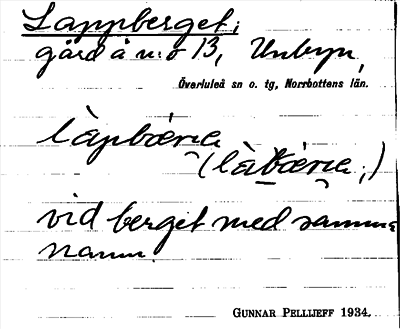 Lappberget;
gård å n:o 13, Unbyn,
Överluleå sn o. tg, Norrbottens län.
làpbær̯a
(làb̲ær̯a;)
vid berget med samma
namn.
GUNNAR PELLIJEFF 1934.